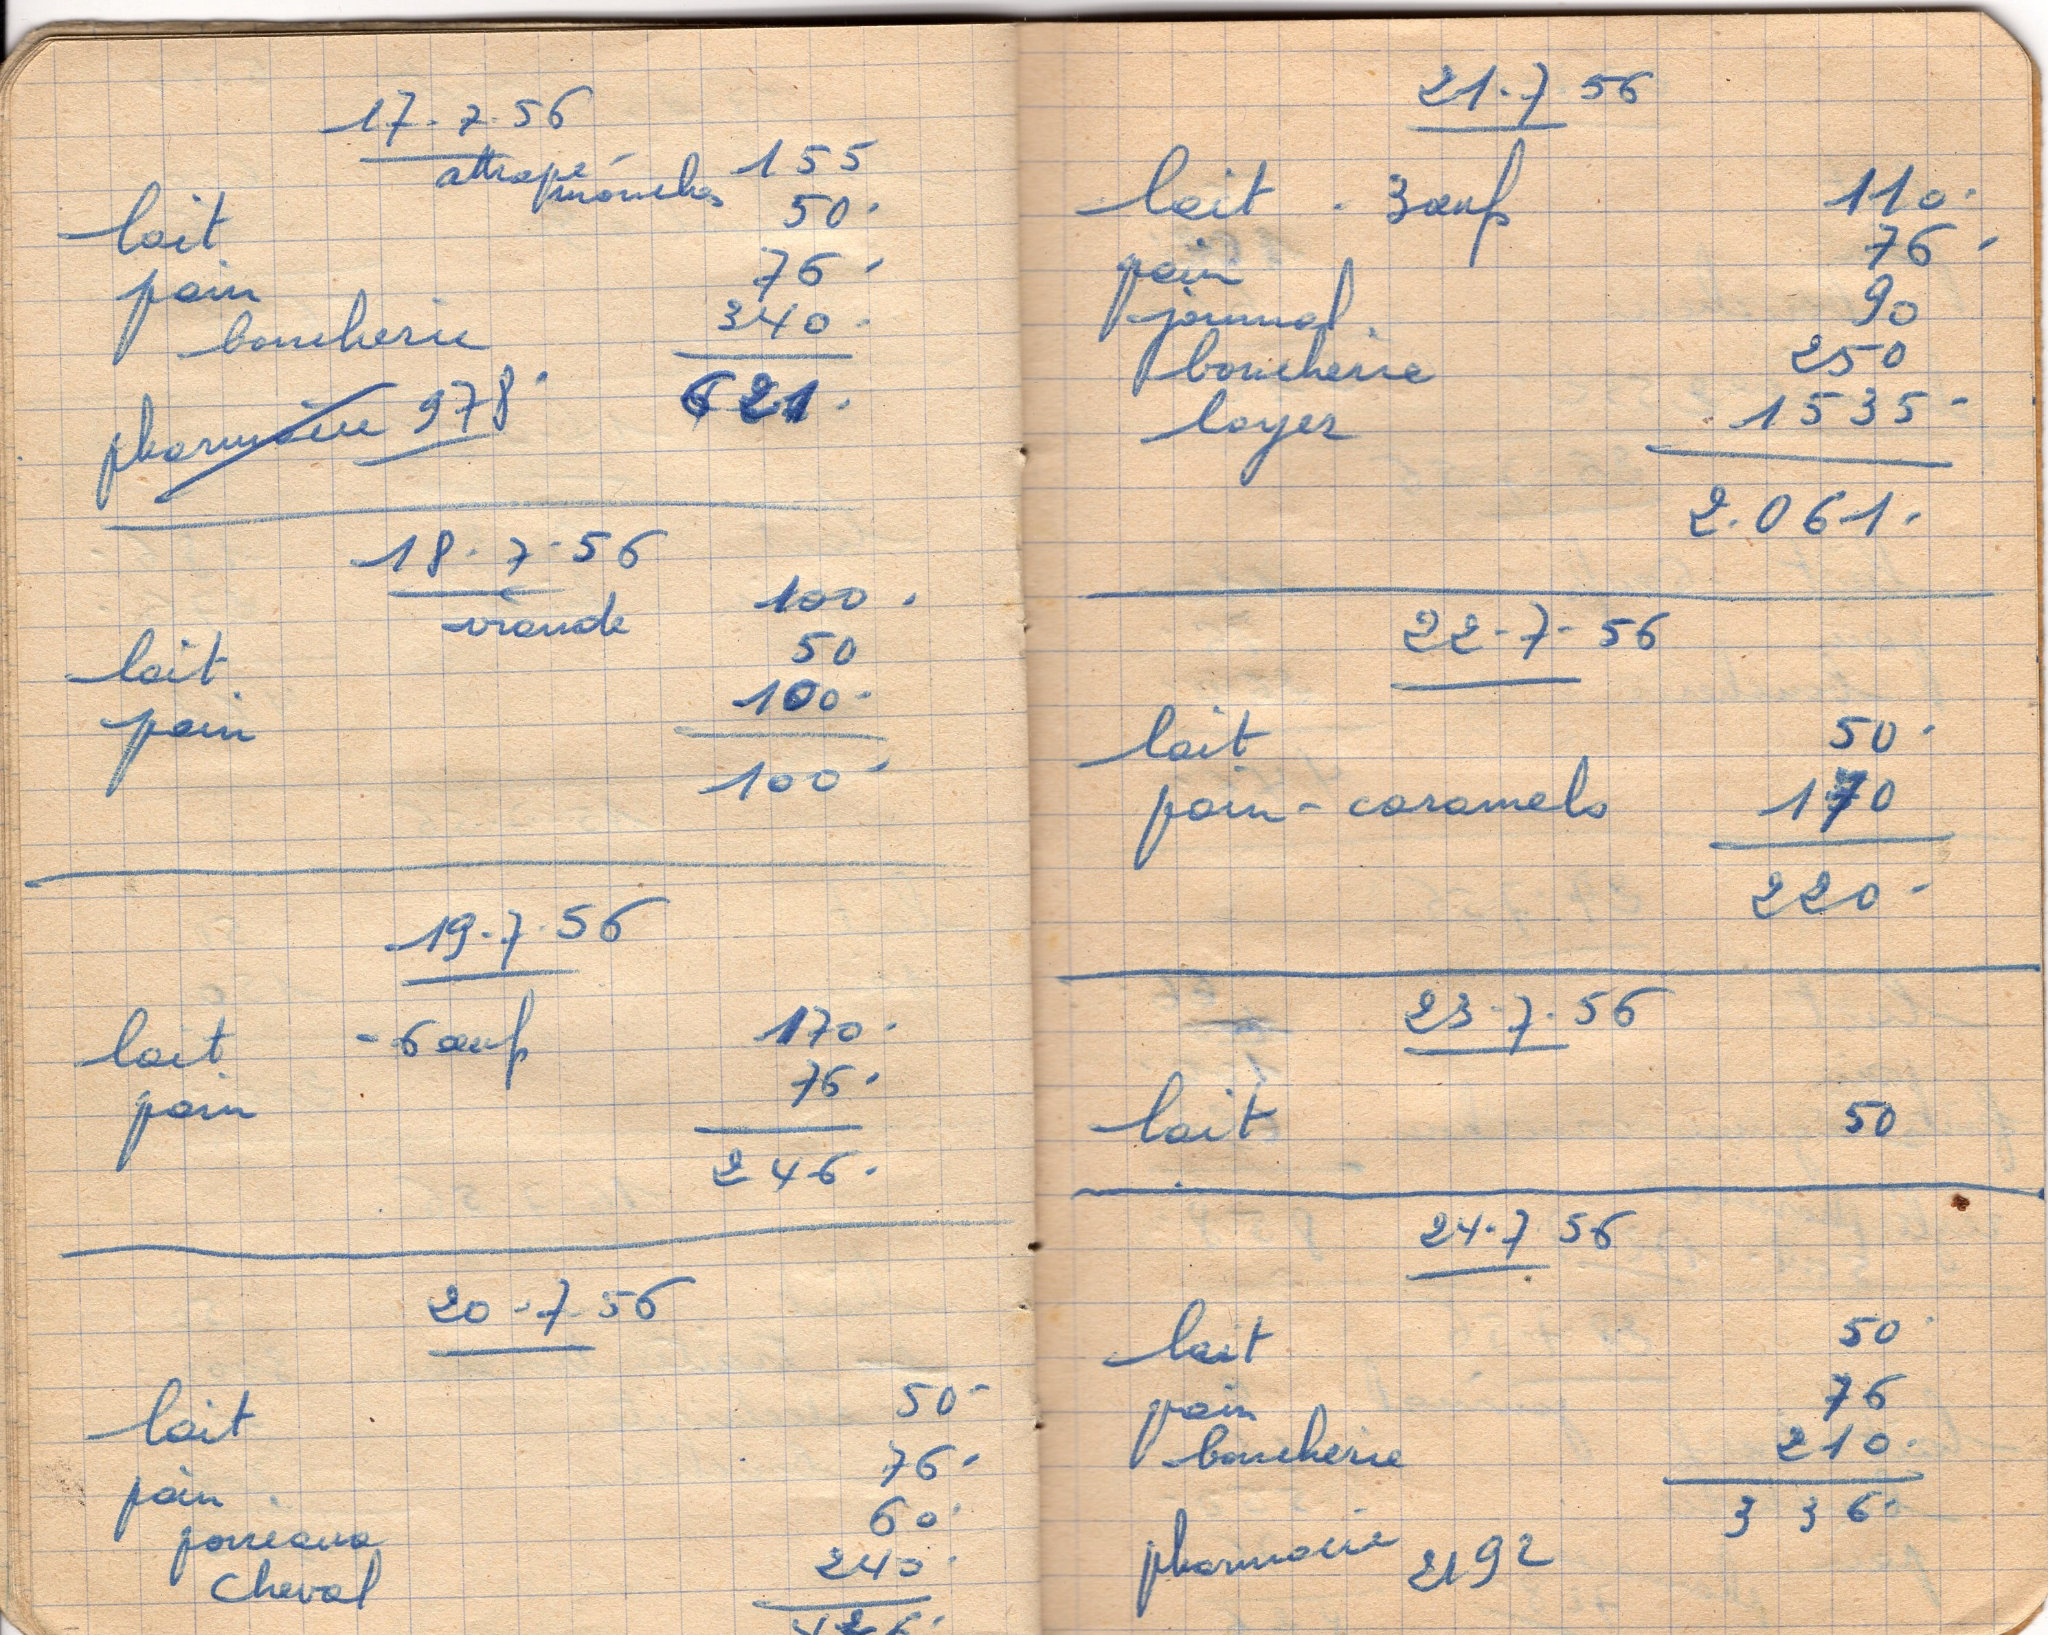 17.7.56
attrapé mouches 155
lait 50.
pain 76.
boucherie 340.
621.
pharmacie 978.
18.7.56
viande 100.
lait 50
pain 100.
100.
19.7.56
lait - 6 œufs 170.
pain 76.
246.
20.7.56
lait 50.
pain 76.
poireaux 60.
cheval 240.
426.
21.7.56
lait - 3 œufs 110.
pain 76.
journal 90
boucherie 250
loyer 1535-
2.061.
22.7.56
lait 50.
pain - caramels 170
220-
23.7.56
lait 50
24.7.56
lait 50
pain 76
boucherie 210.
336.
pharmacie 2192